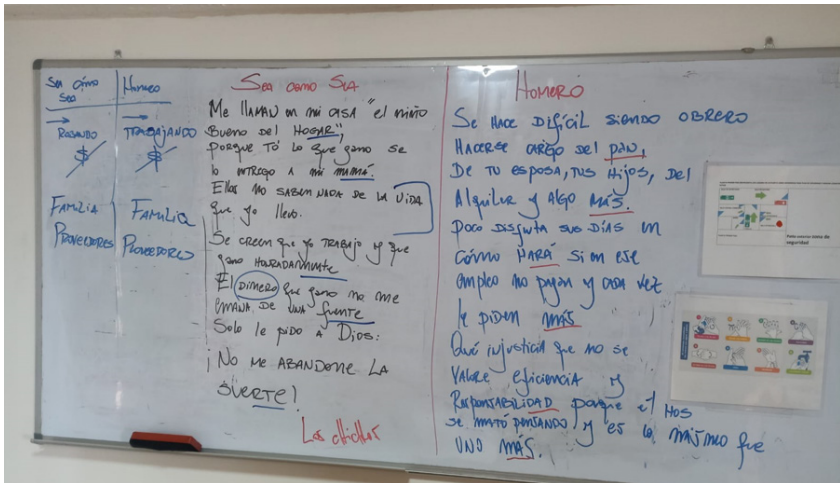 Sea como
Sea
Homero
Robando
Trabajando
$
$
Familia
Proveedores
Familia
Proveedores
Sea como Sea
Me llaman en mi casa "el niño
bueno del HOGAR",
porque Tó lo que gano se
lo entrego a mi mamá.
Ellos no saben nada de la vida
que yo llevo.
Se creen que yo trabajo y que
gano honradamente
El dinero que gano no me
emana de una fuente
Solo le pido a Dios:
¡No me abandone la
suerte!
HOMERO
Se hace difícil siendo obrero
hacerse cargo del pan,
De tu esposa, tus hijos, del
Alquiler y algo más.
poco disfruta sus días en
cómo hará si en ese
empleo no pagan y cada vez
le piden más
Qué injusticia que no se
valore eficiencia y
Responsabilidad porque el
se mató pensando y es lo mismo que
uno más.